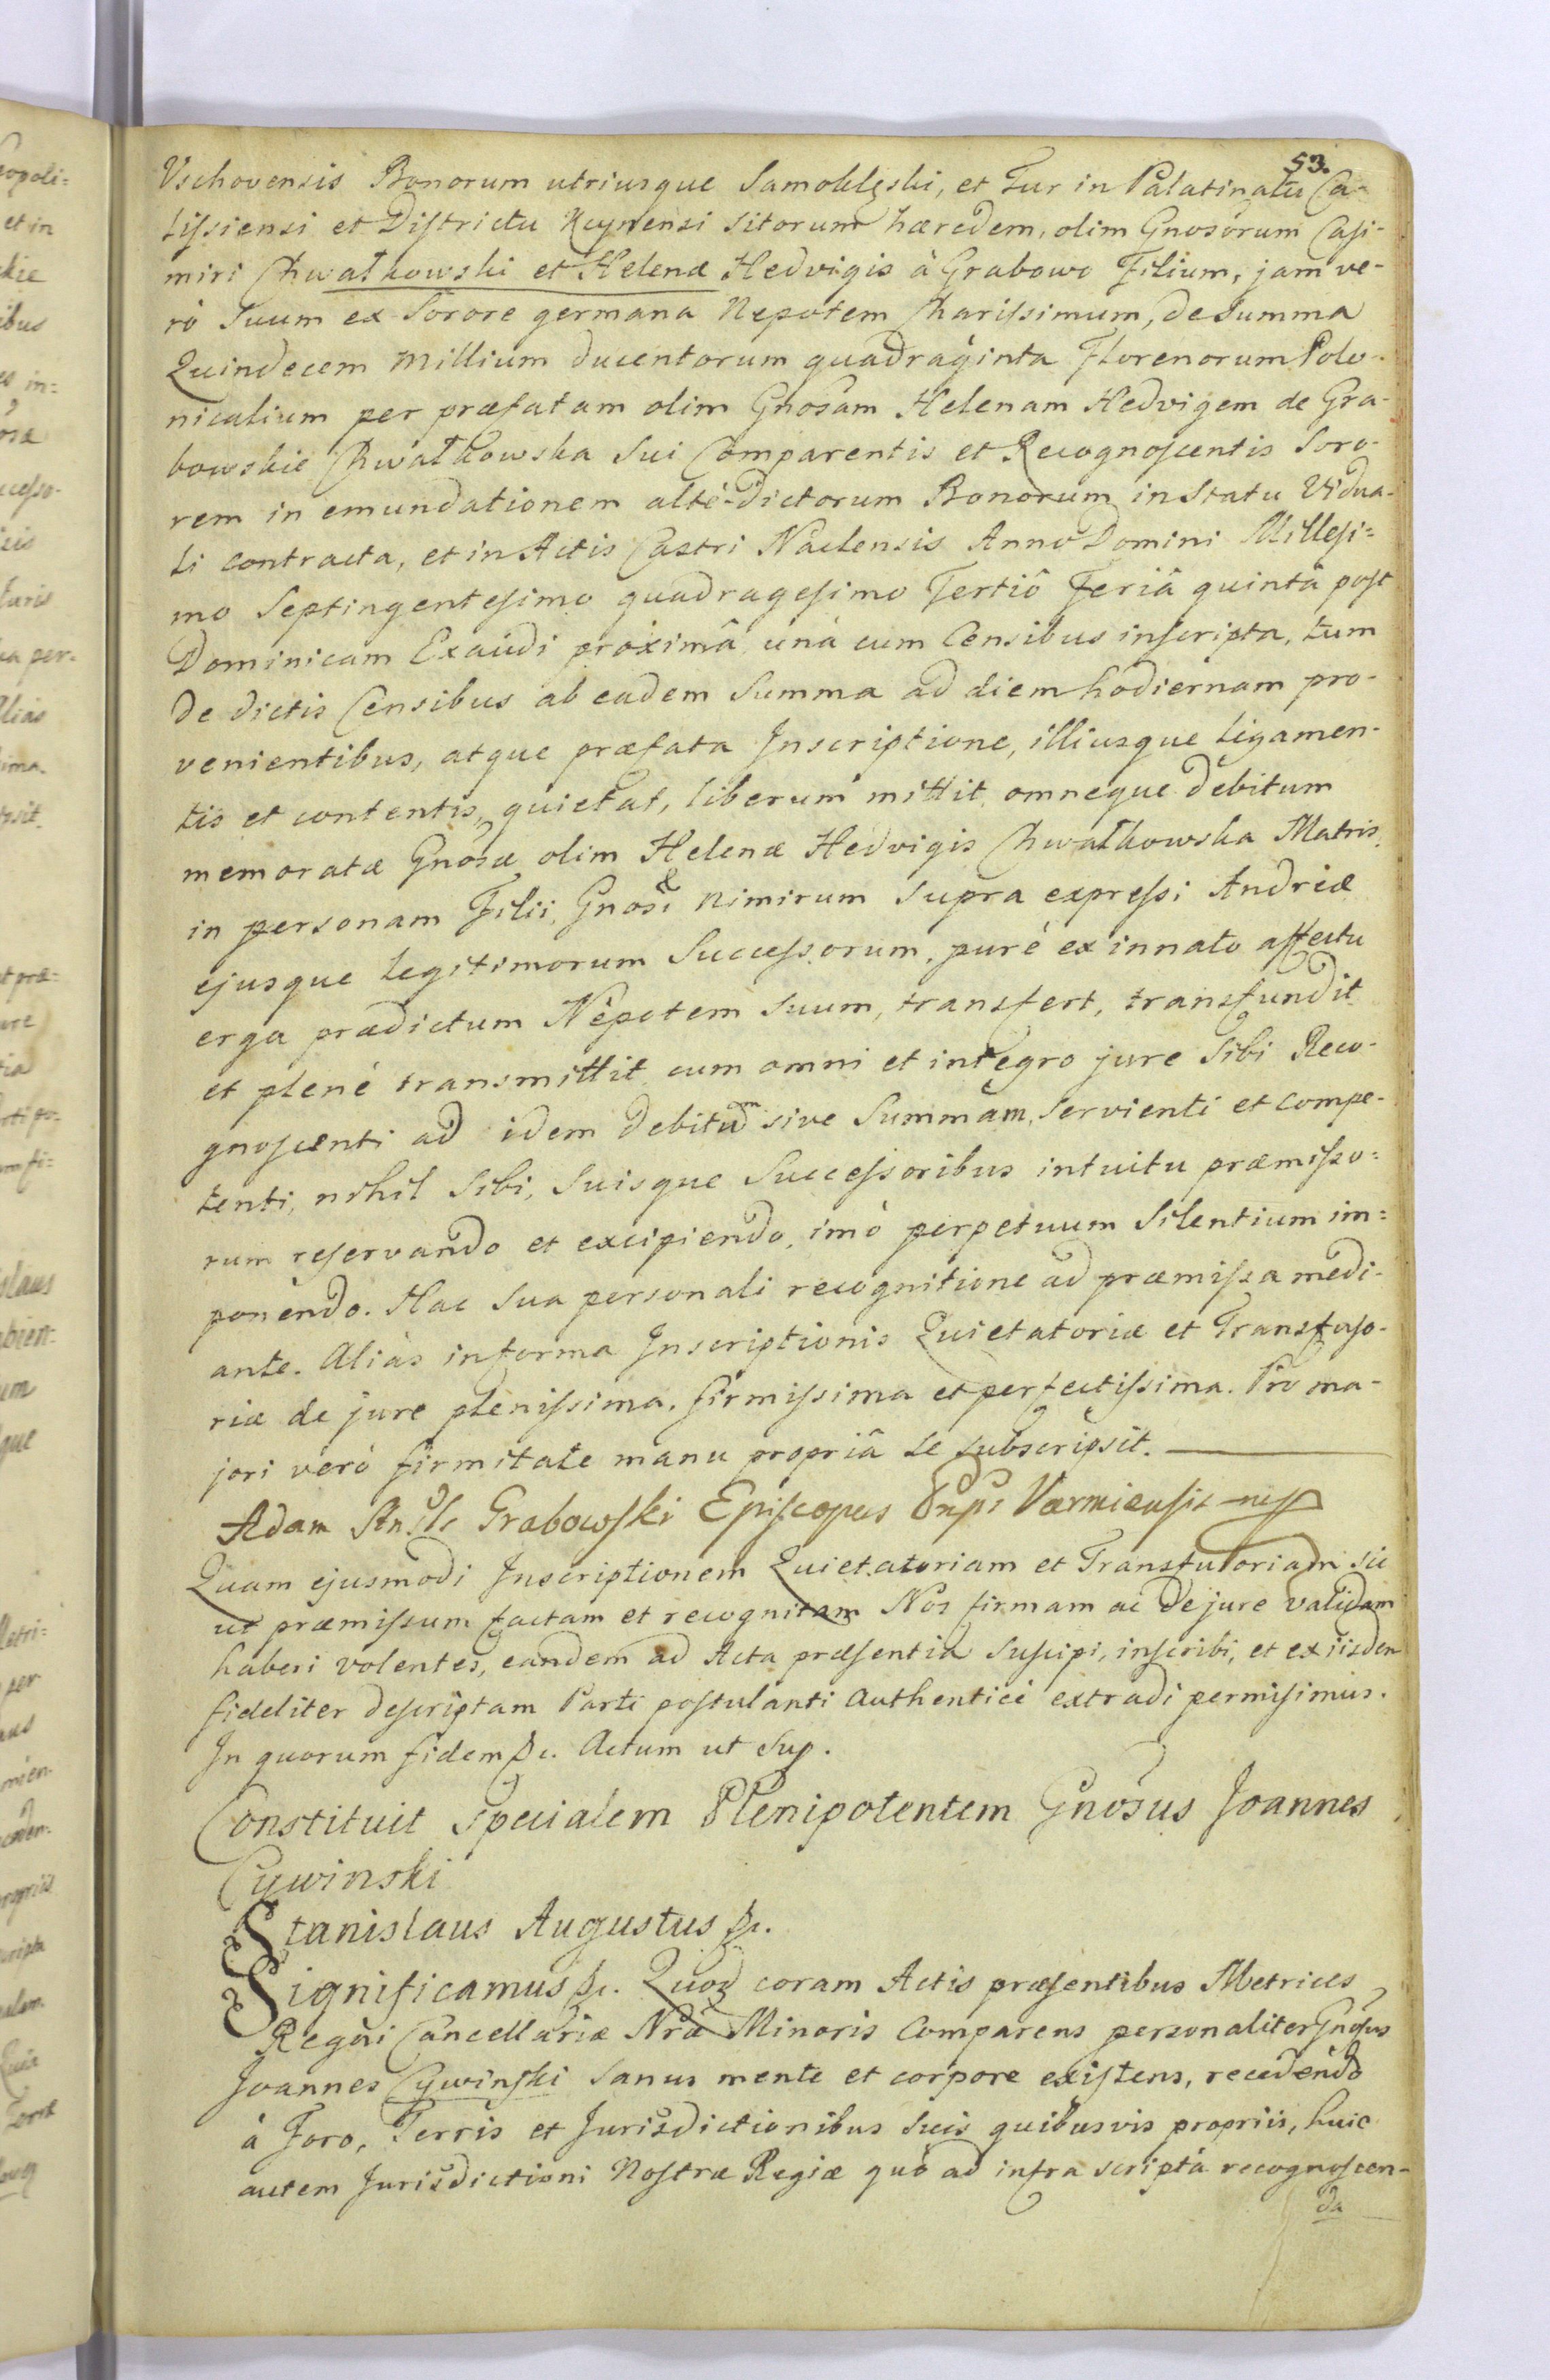 53.
Vschovensis Bonorum utriusque Samoklęski, et Tur in Palatinatu Ca-
lissiensi et Districtu Kcynensi sitorum hæredem, olim Gnosorum Casi-
miri Chwałkowski et Helenæ Hedvigis à Grabowo Filium, jam ve-
rò Suum ex Sorore germana Nepotem Charissimum, de Summa
Quindecem Millium ducentorum quadraginta Florenorum Polo-
nicalium per præfatam olim Gnosam Helenam Hedvigem de Gra-
bowskie Chwałkowska Sui Comparentis et Recognoscentis Soro-
rem in emundationem altè-dictorum Bonorum in Statu Vidua-
li contracta, et in Actis Castri Naclensis Anno Domini Millesi-
mo Septingentesimo quadragesimo Tertiô Feriâ quintâ post
Dominicam Exaudi proximâ unà cum Censibus inscripta, tum
de dictis Censibus ab eadem Summa ad diem hodiernam pro-
venientibus, atque præfata Inscriptione, illiusque ligamen-
tis et contentis, quietat, liberum mittit, omneque debitum
memoratæ Gnosæ olim Helenæ Hedvigis Chwałkowska Matris,
in personam Filii, Gnosi & nimirum Supra expressi Andreæ
ejusque legitimorum Successorum, purè ex innato affectu
erga prædictum Nepotem Suum, transfert, transfundit
et plenè transmittit cum omni et integro jure Sibi Reco-
gnoscenti ad idem debitum sive Summam, Servienti et compe-
tenti, nihil Sibi, Suisque Successoribus intuitu præmisso-
rum reservando et excipiendo, imò perpetuum Silentium im-
ponendo. Hac Sua personali recognitione ad præmissa medi-
ante. Aliàs in forma Inscriptionis Quietatoriæ et Transfuso-
riæ de jure plenissima, firmissima et perfectissima. Pro ma-
jori verò firmitate manu propriâ se subscripsit.
Adam Stnsls Grabowski Episcopus Pnps Varmiensis mp
Quam ejusmodi Inscriptionem Quietatoriam et Transfusoriam sic
ut præmissum factam et recognitam Nos firmam ac de jure validam
haberi volentes, eandem ad Acta præsentia Suscipi, inscribi, et ex iisdem
fideliter descriptam Parti postulanti authenticè extradi permisimus.
In quorum fidem &c. Actum ut Sup.
Constituit Specialem Plenipotentem Gnosus Joannes
Cywinski
Stanislaus Augustus &c.
Significamus &c. Quod coram Actis præsentibus Metrices
Regni Cancellariæ Nræ Minoris Comparens personaliter Gnosus
Joannes Cywinski Sanus mente et corpore existens, recedendo
à Foro, Terris et Jurisdictionibus Suis quibusvis propriis, huic
autem Jurisdictioni Nostræ Regiæ quò ad infra scripta recognoscen-
da